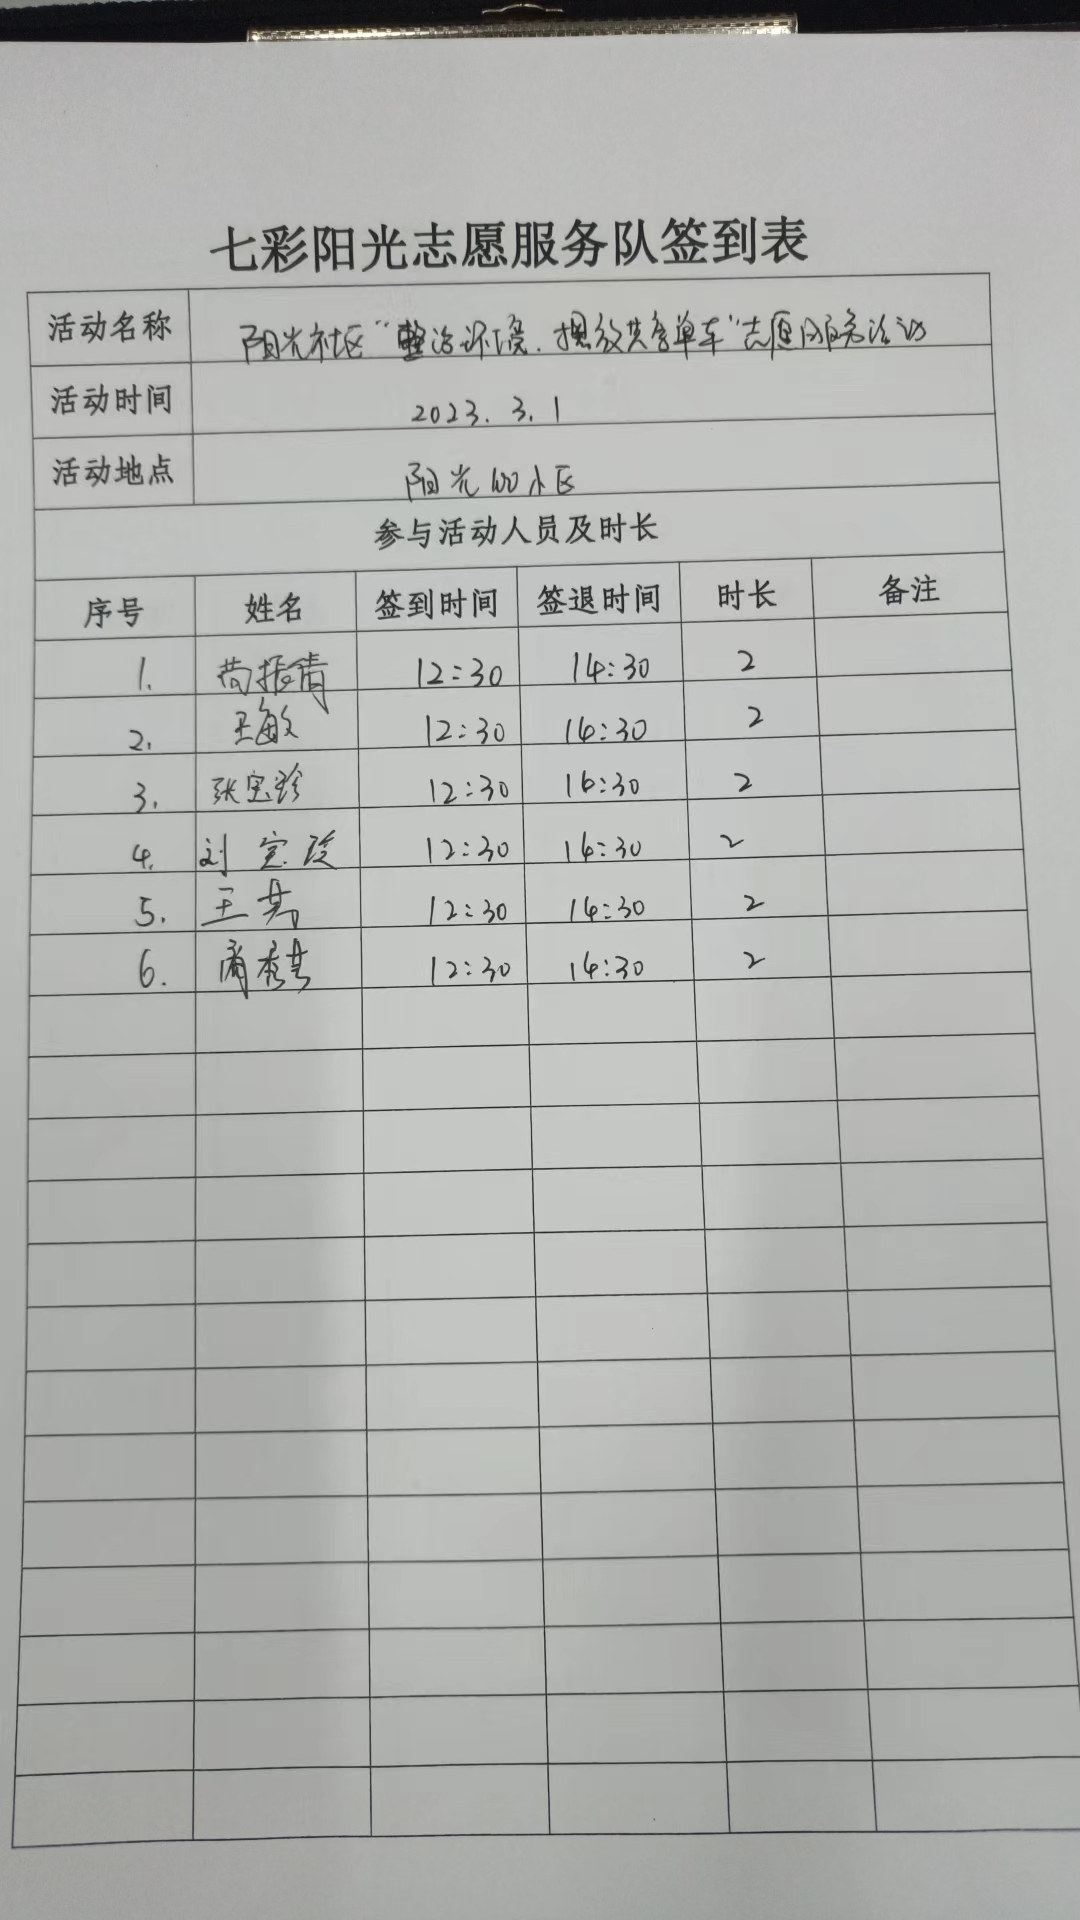 七彩阳光志愿服务队签到表
活动名称 阳光社区“整治环境、摆放共享单车”志愿服务活动
活动时间 2023.3.1
活动地点 阳光100小区
参与活动人员及时长
序号 姓名 签到时间 签退时间 时长 备注
1. 12:30 14:30 2
2. 王敏 12:30 14:30 2
3. 张宝珍 12:30 14:30 2
4. 刘宝 12:30 14:30 2
5. 王 12:30 14:30 2
6. 12:30 14:30 2